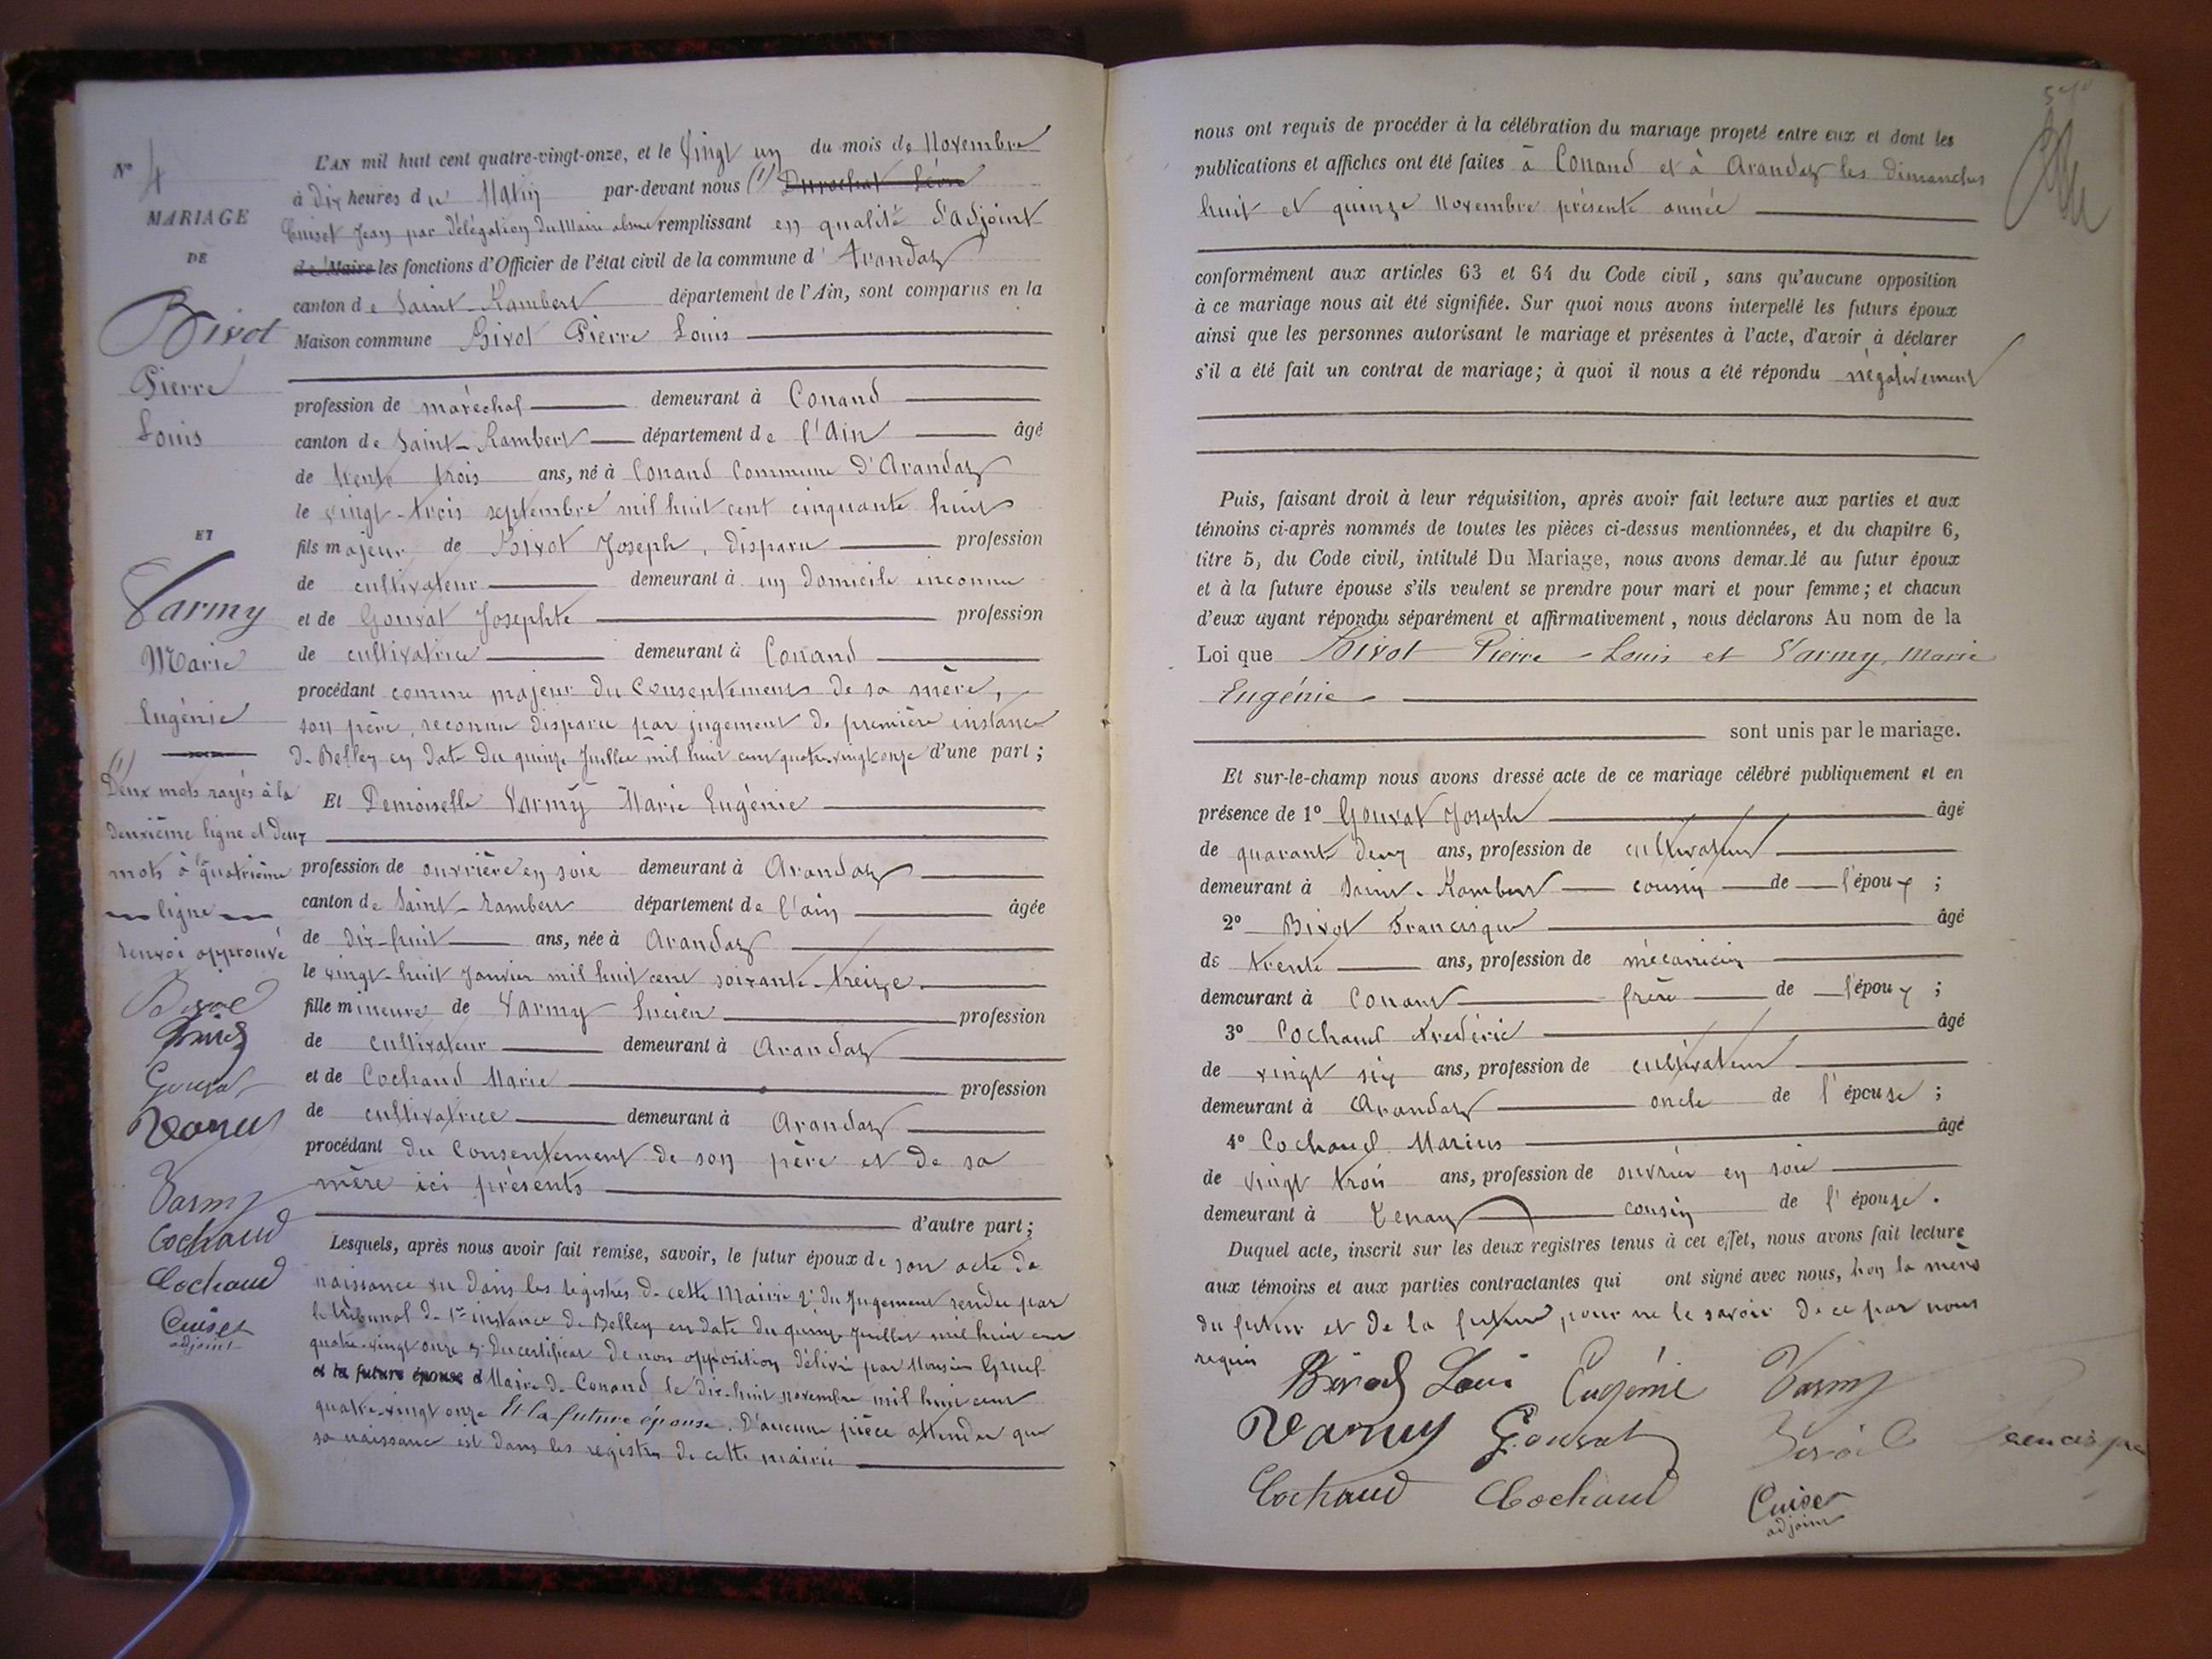 N° 4
MARIAGE
DE
Bivot
Pierre
Louis
ET
Varmy
Marie
Eugénie
(1)
Deux mots rayés à la
deuxième ligne et deux
mots à la quatrième
ligne
renvoi approuvé
Gouvat
Varmy
Varmy
Cochaud
Cochaud
Cuiset
adjoint
L'AN mil huit cent quatre-vingt-onze, et le Vingt un du mois de Novembre
à dix heures du Matin par-devant nous (1) Durochat Léon
Cuiset Jean par délégation du Maire absent remplissant en qualité d'adjoint
de Maire les fonctions d'Officier de l'état civil de la commune d'Arandas
canton de Saint-Rambert département de l'Ain, sont comparus en la
Maison commune Bivot Pierre Louis
profession de maréchal demeurant à Conand
canton de Saint-Rambert département de l'Ain âgé
de trente trois ans, né à Conand Commune d'Arandas
le vingt-trois septembre mil huit cent cinquante huit
fils majeur de Bivot Joseph, disparu profession
de cultivateur demeurant à un domicile inconnu
et de Gouvat Josephte profession
de cultivatrice demeurant à Conand
procédant comme majeur du Consentement de sa mère,
son père, reconnu disparu par jugement de première instance
de Belley en date du quinze Juillet mil huit cent quatre-vingt onze d'une part;
Et Demoiselle Varmy Marie Eugénie
profession de ouvrière en soie demeurant à Arandas
canton de Saint-Rambert département de l'ain âgée
de dix-huit ans, née à Arandas
le vingt-huit Janvier mil huit cent soixante-treize
fille mineure de Varmy Lucien profession
de cultivateur demeurant à Arandas
et de Cochaud Marie profession
de cultivatrice demeurant à Arandas
procédant du Consentement de son père et de sa
mère ici présents
d'autre part;
Lesquels, après nous avoir fait remise, savoir, le futur époux de son acte de
naissance vu dans les registres de cette Mairie 2° du Jugement rendu par
le tribunal de 1re instance de Belley en date du quinze Juillet mil huit cent
quatre-vingt onze 3° du certificat de non opposition délivré par Monsieur Gruel
et la future épouse d Maire de Conand le dix-huit novembre mil huit cent
quatre-vingt onze Et la future épouse. D'aucune pièce attendu que
sa naissance est dans les registres de cette mairie
nous ont requis de procéder à la célébration du mariage projeté entre eux et dont les
publications et affiches ont été faites à Conand et à Arandas les dimanches
huit et quinze Novembre présente année
conformément aux articles 63 et 64 du Code civil, sans qu'aucune opposition
à ce mariage nous ait été signifiée. Sur quoi nous avons interpellé les futurs époux
ainsi que les personnes autorisant le mariage et présentes à l'acte, d'avoir à déclarer
s'il a été fait un contrat de mariage; à quoi il nous a été répondu négativement
Puis, faisant droit à leur réquisition, après avoir fait lecture aux parties et aux
témoins ci-après nommés de toutes les pièces ci-dessus mentionnées, et du chapitre 6,
titre 5, du Code civil, intitulé Du Mariage, nous avons demandé au futur époux
et à la future épouse s'ils veulent se prendre pour mari et pour femme; et chacun
d'eux ayant répondu séparément et affirmativement, nous déclarons Au nom de la
Loi que Bivot Pierre-Louis et Varmy, Marie
Eugénie
sont unis par le mariage.
Et sur-le-champ nous avons dressé acte de ce mariage célébré publiquement et en
présence de 1° Gouvat Joseph âgé
de quarante deux ans, profession de cultivateur
demeurant à Saint-Rambert cousin de l'époux;
2° Bivot Francisque âgé
de trente ans, profession de mécanicien
demeurant à Conand frère de l'époux;
3° Cochaud Frédéric âgé
de vingt six ans, profession de cultivateur
demeurant à Arandas oncle de l'épouse;
4° Cochaud Marius âgé
de vingt trois ans, profession de ouvrier en soie
demeurant à Tenay cousin de l'épouse.
Duquel acte, inscrit sur les deux registres tenus à cet effet, nous avons fait lecture
aux témoins et aux parties contractantes qui ont signé avec nous, non la mère
du futur et de la future, pour ne le savoir de ce par nous
requis
Louis Eugénie Varmy
Varmy Gouvat
Cochaud Cochaud Cuiset
adjoint